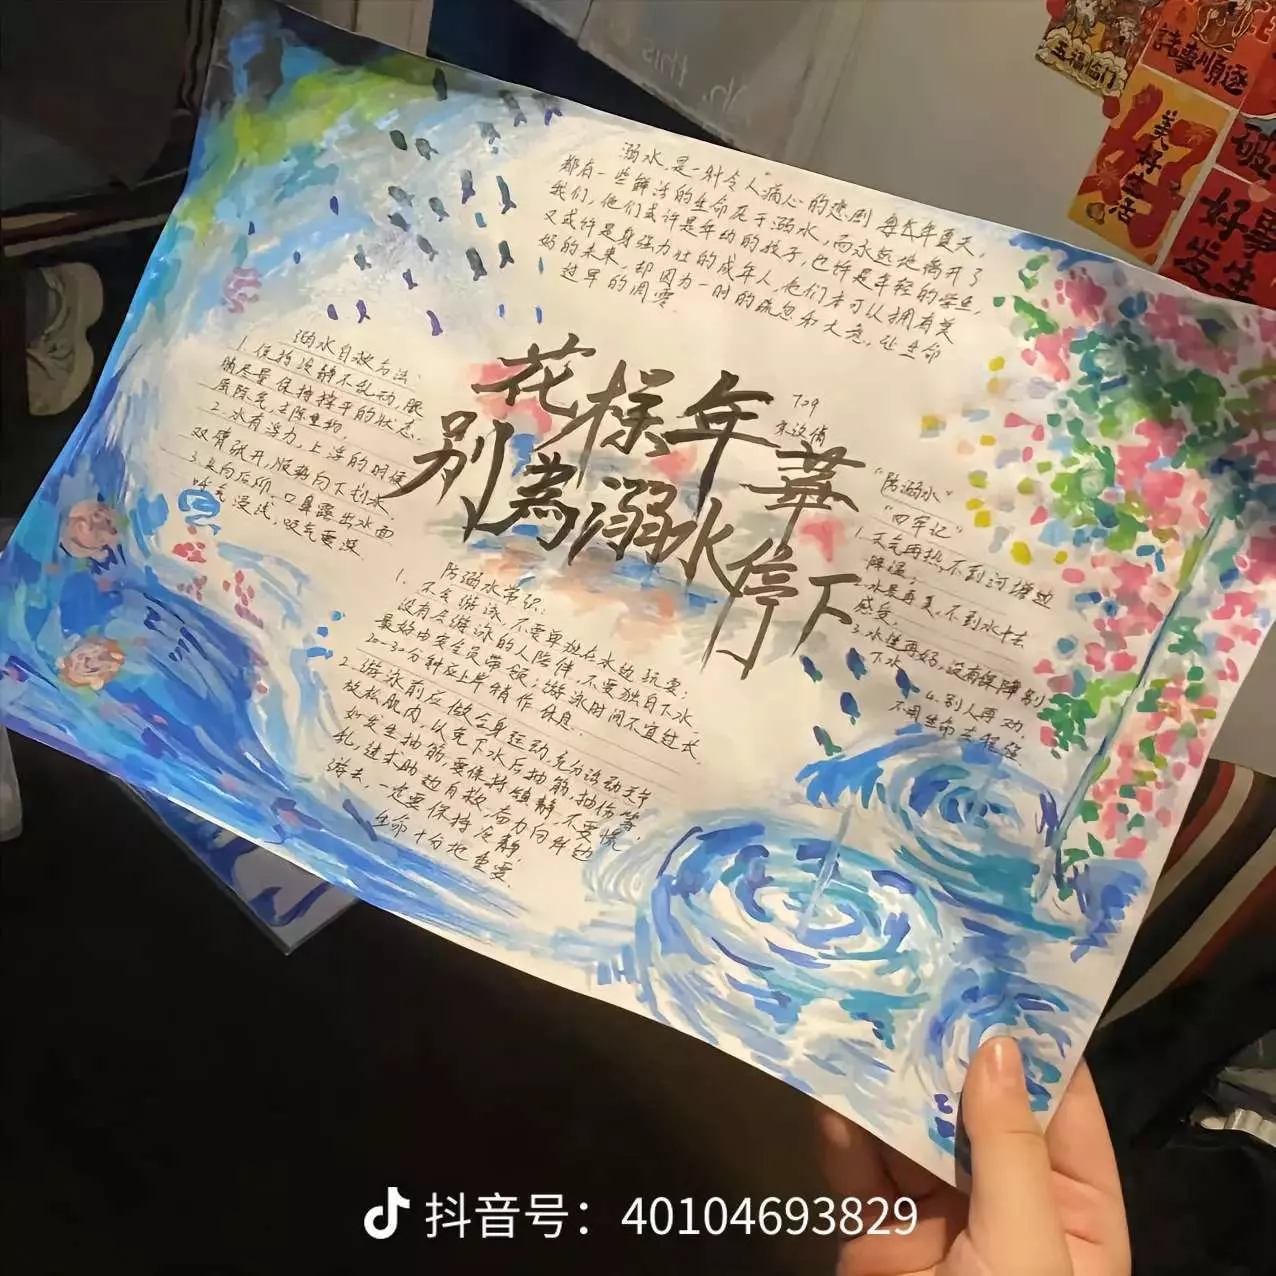 溺水，是一种令人痛心的悲剧 每长年夏天，
都有一些鲜活的生命在于溺水，而永远地离开了
我们，他们或许是年幼的孩子，也许是年轻的学生，
又或许是身强力壮的成年人，他们本可以拥有美
好的未来，却因为一时的疏忽和大意，让生命
过早的凋零
花样年華
别為溺水停下
709
溺水自救方法：
1.保持冷静不乱动，眼
睛尽量保持挂平的状态，
屏除气，去除重物，
2.水有浮力，上浮的时候
双臂张开，顺势向下划水，
3.头向后仰，口鼻露出水面
呼气浅浅，吸气要深
防溺水常识：
1.不会游泳，不要单独在水边玩耍；
没有会游泳的人陪伴，不要独自下水，
最好由安全员带领；游泳时间不宜过长
20-30分钟应上岸稍作休息
2.游泳前应做全身运动，充分活动关节
放松肌肉，以免下水后抽筋，抽伤等
如发生抽筋，要保持镇静，不要慌
乱，进求助边自救，奋力向岸边
游去，一定要保持冷静；
生命十分地重要
“防溺水”
“四牢记”
1.天气再热，不到河塘边
降温；
2.水景再美，不到水中去
感受；
3.水性再好，没有保障别
下水
4.别人再劝，
不用生命去逞强
五福临门
諸事順遂
美好生活
好事发生
抖音号：40104693829